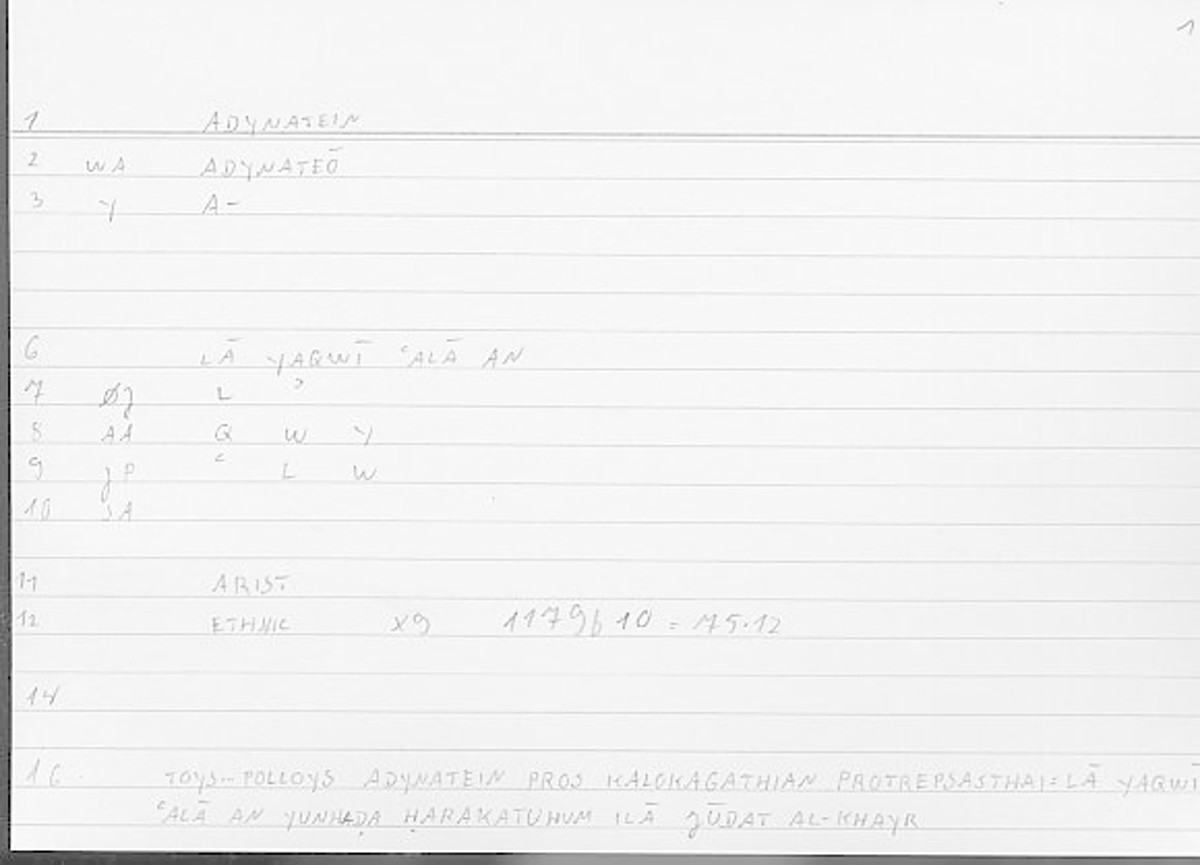 1
1 ADYNATEIN
2 WA ADYNATEŌ
3 Y A-
6 LĀ YAQWĪ ʿALĀ AN
7 Øȷ L ʾ
8 AA Q W Y
9 ȷP ʿ L W
10 JA
11 ARIST
12 ETHNIC X9 1179b10 = 75.12
14
16 TOYS--POLLOYS ADYNATEIN PROS KALOKAGATHIAN PROTREPSASTHAI=LĀ YAQWĪ
ʿALĀ AN YUNHAḌA ḤARAKATUHUM ILĀ ȷŪDAT AL-KHAYR